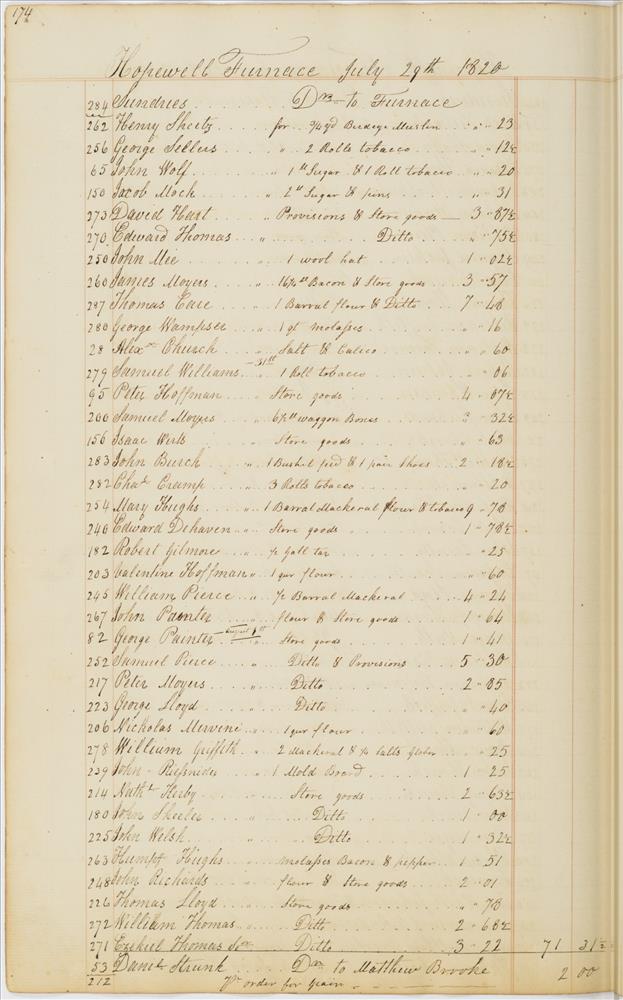 174
Hopewell Furnace July 29th 1820
284 Sundries . . . . Drs to Furnace
262 Henry Sheetz . . . for 3/4 yd Birdeye Muslin " " 23
256 George Sellers . . . " 2 Rolls tobacco . . . " " 12½
65 John Wolf . . . " 1 lb Sugar & 1 Roll tobacco . . " " 20
150 Jacob Mock . . . " 2 lb Sugar & pins . . . " " 31
273 David Hart . . . " Provisions & Store goods — 3 " 87½
270 Edward Thomas . . " Ditto . . . " " 75½
250 John Mie . . . " 1 wool hat . . . 1 " 02½
260 James Moyers . . " 16½ lb Bacon & Store goods . . 3 " 57
297 Thomas Care . . . " 1 Barral flour & Ditto . . . 7 " 48
280 George Wampser . . " 1 qt molasses . . . " " 16
28 Alexr Church . . . " Salt & Calico . . . " " 60
279 Samuel Williams — 31st " 1 Roll tobacco . . . " " 06
95 Peter Hoffman . . . " Store goods . . . 4 " 07½
200 Samuel Moyers . . " 6½ lb waggon Boxes . . . " " 32½
156 Isaac Werts . . . " Store goods . . . " " 63
283 John Burch . . . " 1 Bushel feed & 1 pair Shoes . . 2 " 18½
282 Chas Crump . . . " 3 Rolls tobacco . . . " " 20
254 Mary Hughs . . . " 1 Barral Mackeral flour & tobacco 9 " 78
240 Edward Dehaven . . " Store goods . . . 1 " 78½
182 Robert Gilmore . . " ½ Gall tar . . . " " 25
203 Valentine Hoffman . . " 1 qur flour . . . " " 60
245 William Pierce . . " ½ Barral Mackeral . . . 4 " 24
267 John Painter . . . " flour & Store goods . . . 1 " 64
82 George Painter — August 1st " Store goods . . . 1 " 41
252 Samuel Pierce . . " Ditto & Provisions . . . 5 " 30
217 Peter Moyers . . . " Ditto . . . 2 " 85
223 George Lloyd . . . " Ditto . . . " " 40
206 Nicholas Mervine . . " 1 qur flour . . . " " 60
278 William Griffith . . " 2 Mackeral & ¼ salts Glober . . " " 25
239 John Riefsnider . . " 1 Mold Board . . . 1 " 25
214 Nathl Herby . . . Store goods . . . 2 " 63½
180 John Sheeler . . . Ditto . . . 1 " 00
225 John Welsh . . . Ditto . . . 1 " 32½
263 Humpy Hughs . . " molasses Bacon & pepper . . 1 " 51
248 John Richards . . " flour & Store goods . . . 2 " 01
226 Thomas Lloyd . . . " Store goods . . . " " 78
272 William Thomas . . " Ditto . . . 2 " 68½
271 Ezekiel Thomas Snr . . Ditto . . . 3 " 22 71 31½
53 Daniel Strunk . . . Dr to Matthew Brooke
212 Pr order for grain . . . 2 00